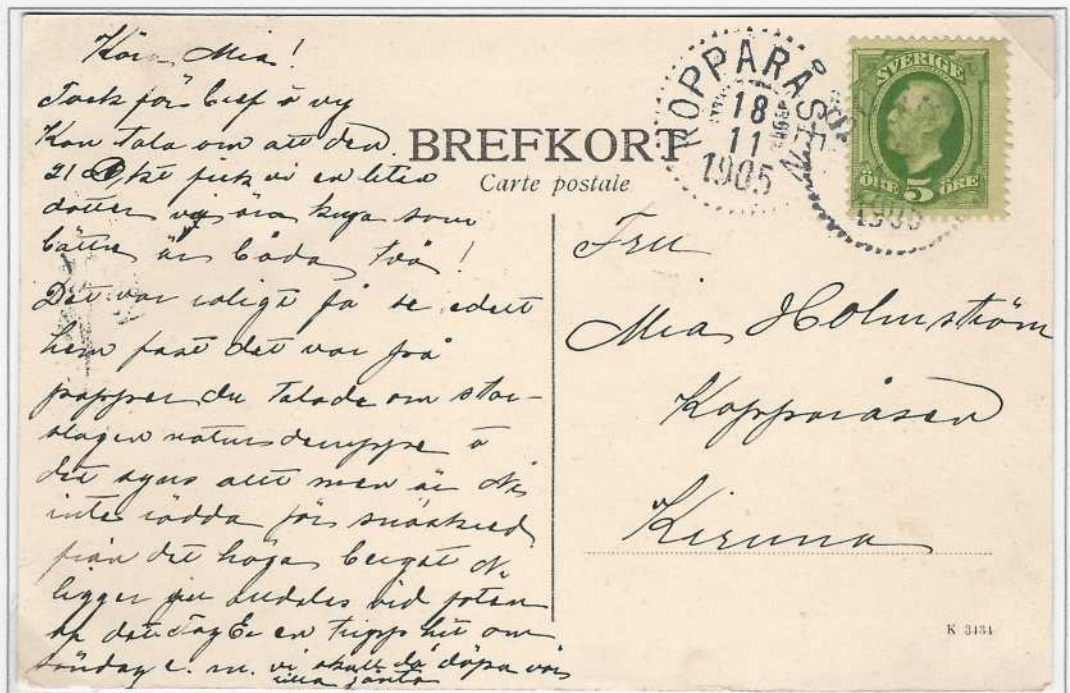 Kära Mia!
Tack för bref o vy
Kan tala om att den
21 Okt fick vi en liten
dotter vi äro kryа som
bättre är båda två!
Det var roligt få se edert
hem fast det var på
papper du talade om stor-
slagen natur deruppe o
det syns att men är Ni
inte rädda för snöskred
från det höga berget Ni
ligger ju alldeles vid foten
af det Tag Er en tripp hit om
söndag e. m. vi skall då döpa vår
lilla jänta
BREFKORT
Carte postale
KOPPARÅSEN
18
11
1905
SVERIGE
ÖRE 5 ÖRE
1905
Fru
Mia Holmström
Kopparåsen
Kiruna
K 3434